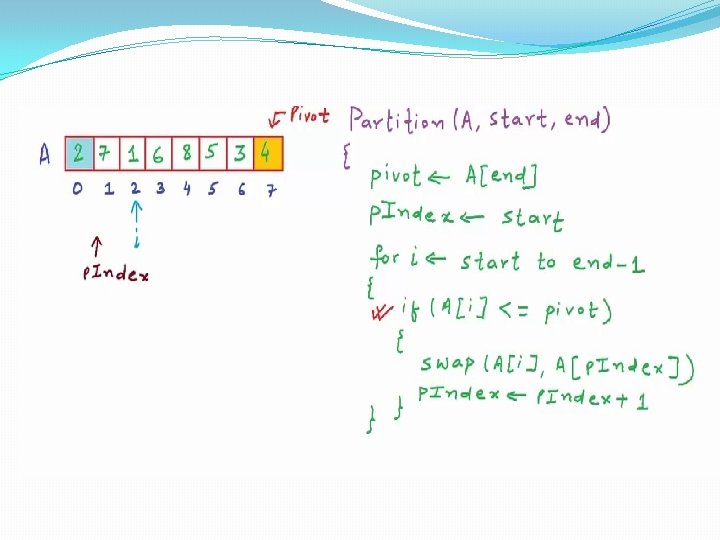 Pivot
A 2 7 1 6 8 5 3 4
0 1 2 3 4 5 6 7
i
pIndex
Partition (A, start, end)
{
pivot ← A[end]
pIndex ← start
for i ← start to end-1
{
if (A[i] <= pivot)
{
swap (A[i], A[pIndex])
pIndex ← pIndex + 1
}
}